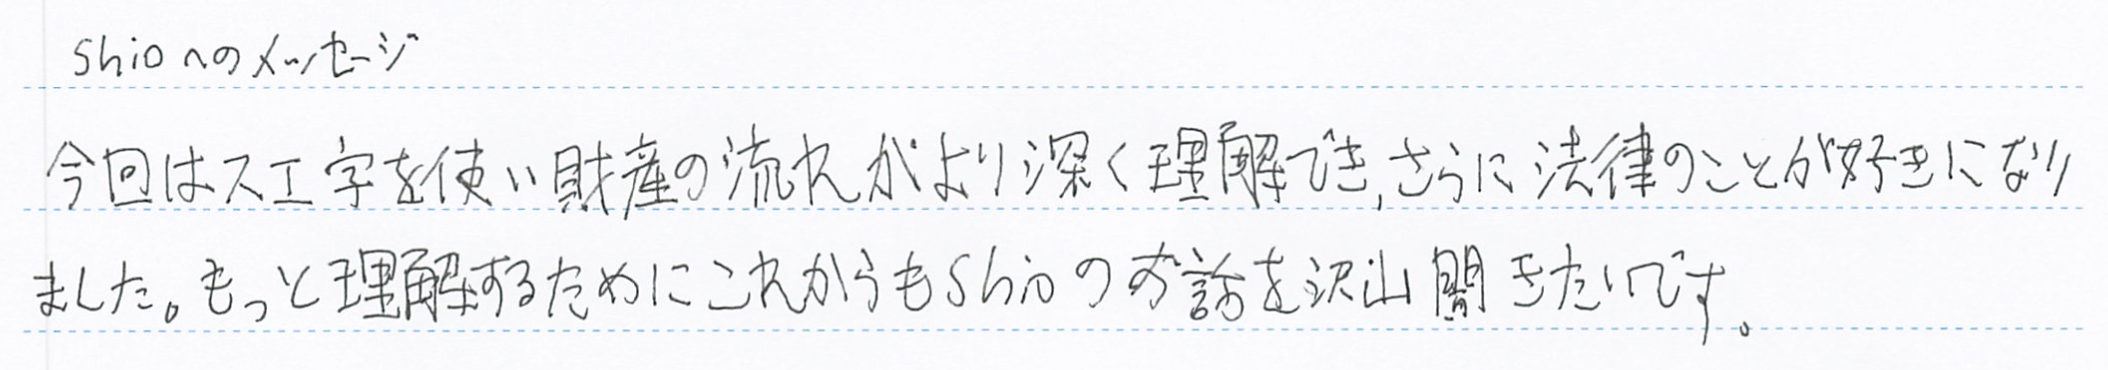 shioへのメッセージ
今回はスエ字を使い財産の流れがより深く理解でき,さらに法律のことが好きになり
ました。もっと理解するためにこれからもshioのお話を沢山聞きたいです。